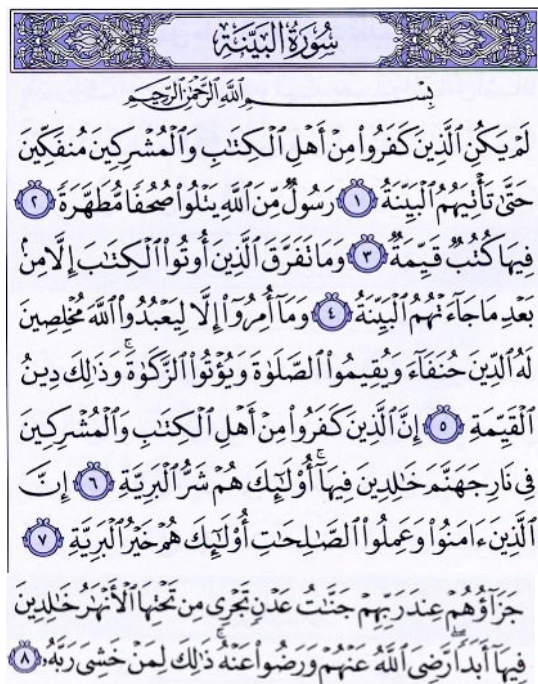 سُورَةُ البَيِّنَةِ
بِسْمِ اللَّهِ الرَّحْمَٰنِ الرَّحِيمِ
لَمْ يَكُنِ ٱلَّذِينَ كَفَرُوا۟ مِنْ أَهْلِ ٱلْكِتَٰبِ وَٱلْمُشْرِكِينَ مُنفَكِّينَ
حَتَّىٰ تَأْتِيَهُمُ ٱلْبَيِّنَةُ ١ رَسُولٌ مِّنَ ٱللَّهِ يَتْلُوا۟ صُحُفًا مُّطَهَّرَةً ٢
فِيهَا كُتُبٌ قَيِّمَةٌ ٣ وَمَا تَفَرَّقَ ٱلَّذِينَ أُوتُوا۟ ٱلْكِتَٰبَ إِلَّا مِنۢ
بَعْدِ مَا جَآءَتْهُمُ ٱلْبَيِّنَةُ ٤ وَمَآ أُمِرُوٓا۟ إِلَّا لِيَعْبُدُوا۟ ٱللَّهَ مُخْلِصِينَ
لَهُ ٱلدِّينَ حُنَفَآءَ وَيُقِيمُوا۟ ٱلصَّلَوٰةَ وَيُؤْتُوا۟ ٱلزَّكَوٰةَ ۚ وَذَٰلِكَ دِينُ
ٱلْقَيِّمَةِ ٥ إِنَّ ٱلَّذِينَ كَفَرُوا۟ مِنْ أَهْلِ ٱلْكِتَٰبِ وَٱلْمُشْرِكِينَ
فِى نَارِ جَهَنَّمَ خَٰلِدِينَ فِيهَآ ۚ أُو۟لَٰٓئِكَ هُمْ شَرُّ ٱلْبَرِيَّةِ ٦ إِنَّ
ٱلَّذِينَ ءَامَنُوا۟ وَعَمِلُوا۟ ٱلصَّٰلِحَٰتِ أُو۟لَٰٓئِكَ هُمْ خَيْرُ ٱلْبَرِيَّةِ ٧
جَزَآؤُهُمْ عِندَ رَبِّهِمْ جَنَّٰتُ عَدْنٍ تَجْرِى مِن تَحْتِهَا ٱلْأَنْهَٰرُ خَٰلِدِينَ
فِيهَآ أَبَدًا ۖ رَّضِىَ ٱللَّهُ عَنْهُمْ وَرَضُوا۟ عَنْهُ ۚ ذَٰلِكَ لِمَنْ خَشِىَ رَبَّهُۥ ٨